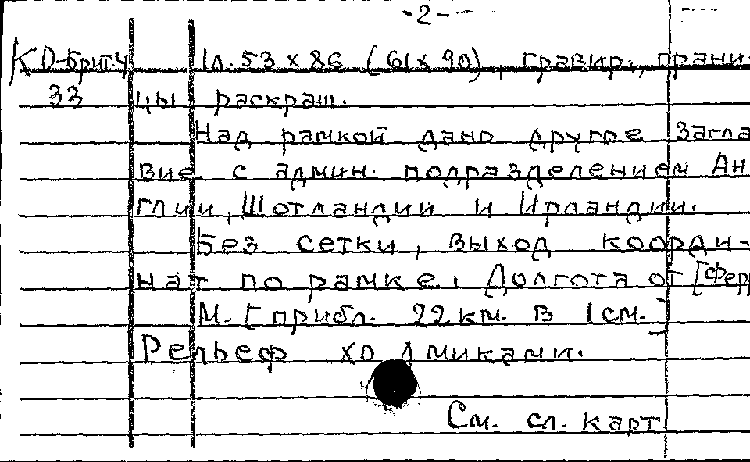 -2-
КО-Брит.4 1л. 53 х 86 (61х90), гравир., грани-
33 цы раскраш.
Над рамкой дано другое загла
вие с админ. подразделением Ан
глии, Шотландии и Ирландии.
Без сетки, выход коорди-
нат по рамке. Долгота от [Ферр
М. [прибл. 22 км. в 1 см.]
Рельеф холмиками.
См. сл. карт